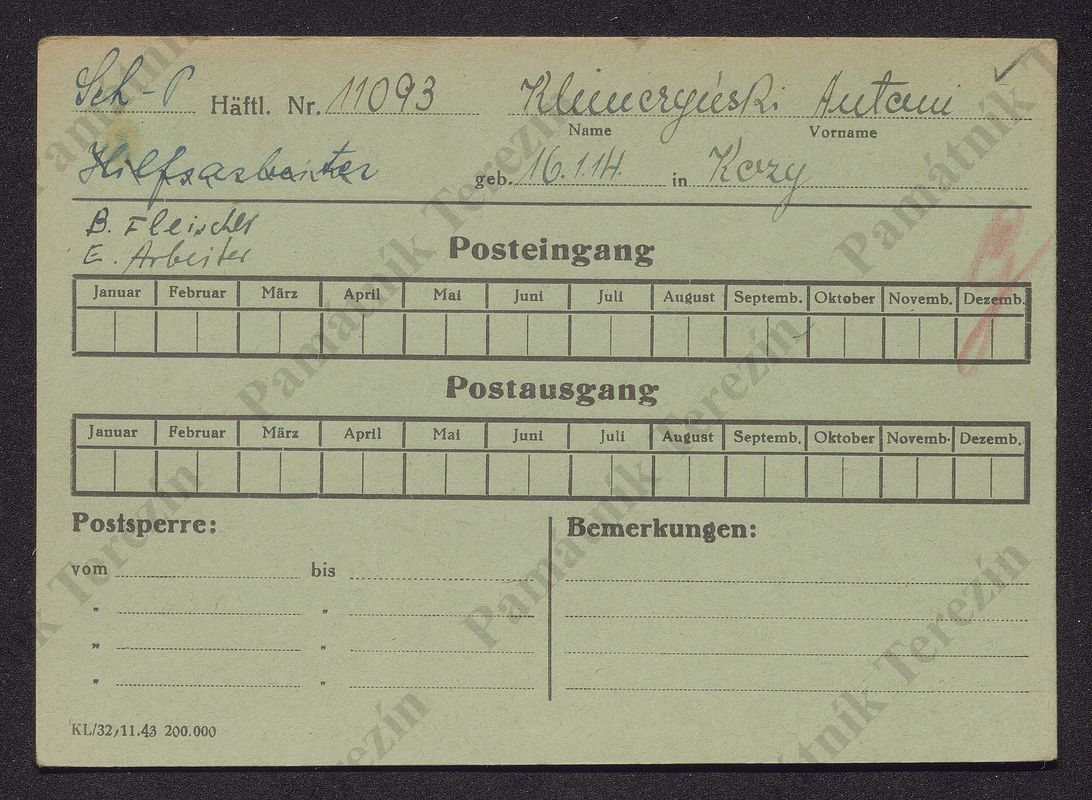 Sch-P Häftl. Nr. 11093 Klimczyński Antoni
Name Vorname
Hilfsarbeiter geb. 16.1.14. in Kozy
B. Fleischer
E. Arbeiter
Posteingang
Januar Februar März April Mai Juni Juli August Septemb. Oktober Novemb. Dezemb.
Postausgang
Januar Februar März April Mai Juni Juli August Septemb. Oktober Novemb. Dezemb.
Postsperre: Bemerkungen:
vom bis
" "
" "
" "
KL/32/11.43 200.000
Památník Terezín